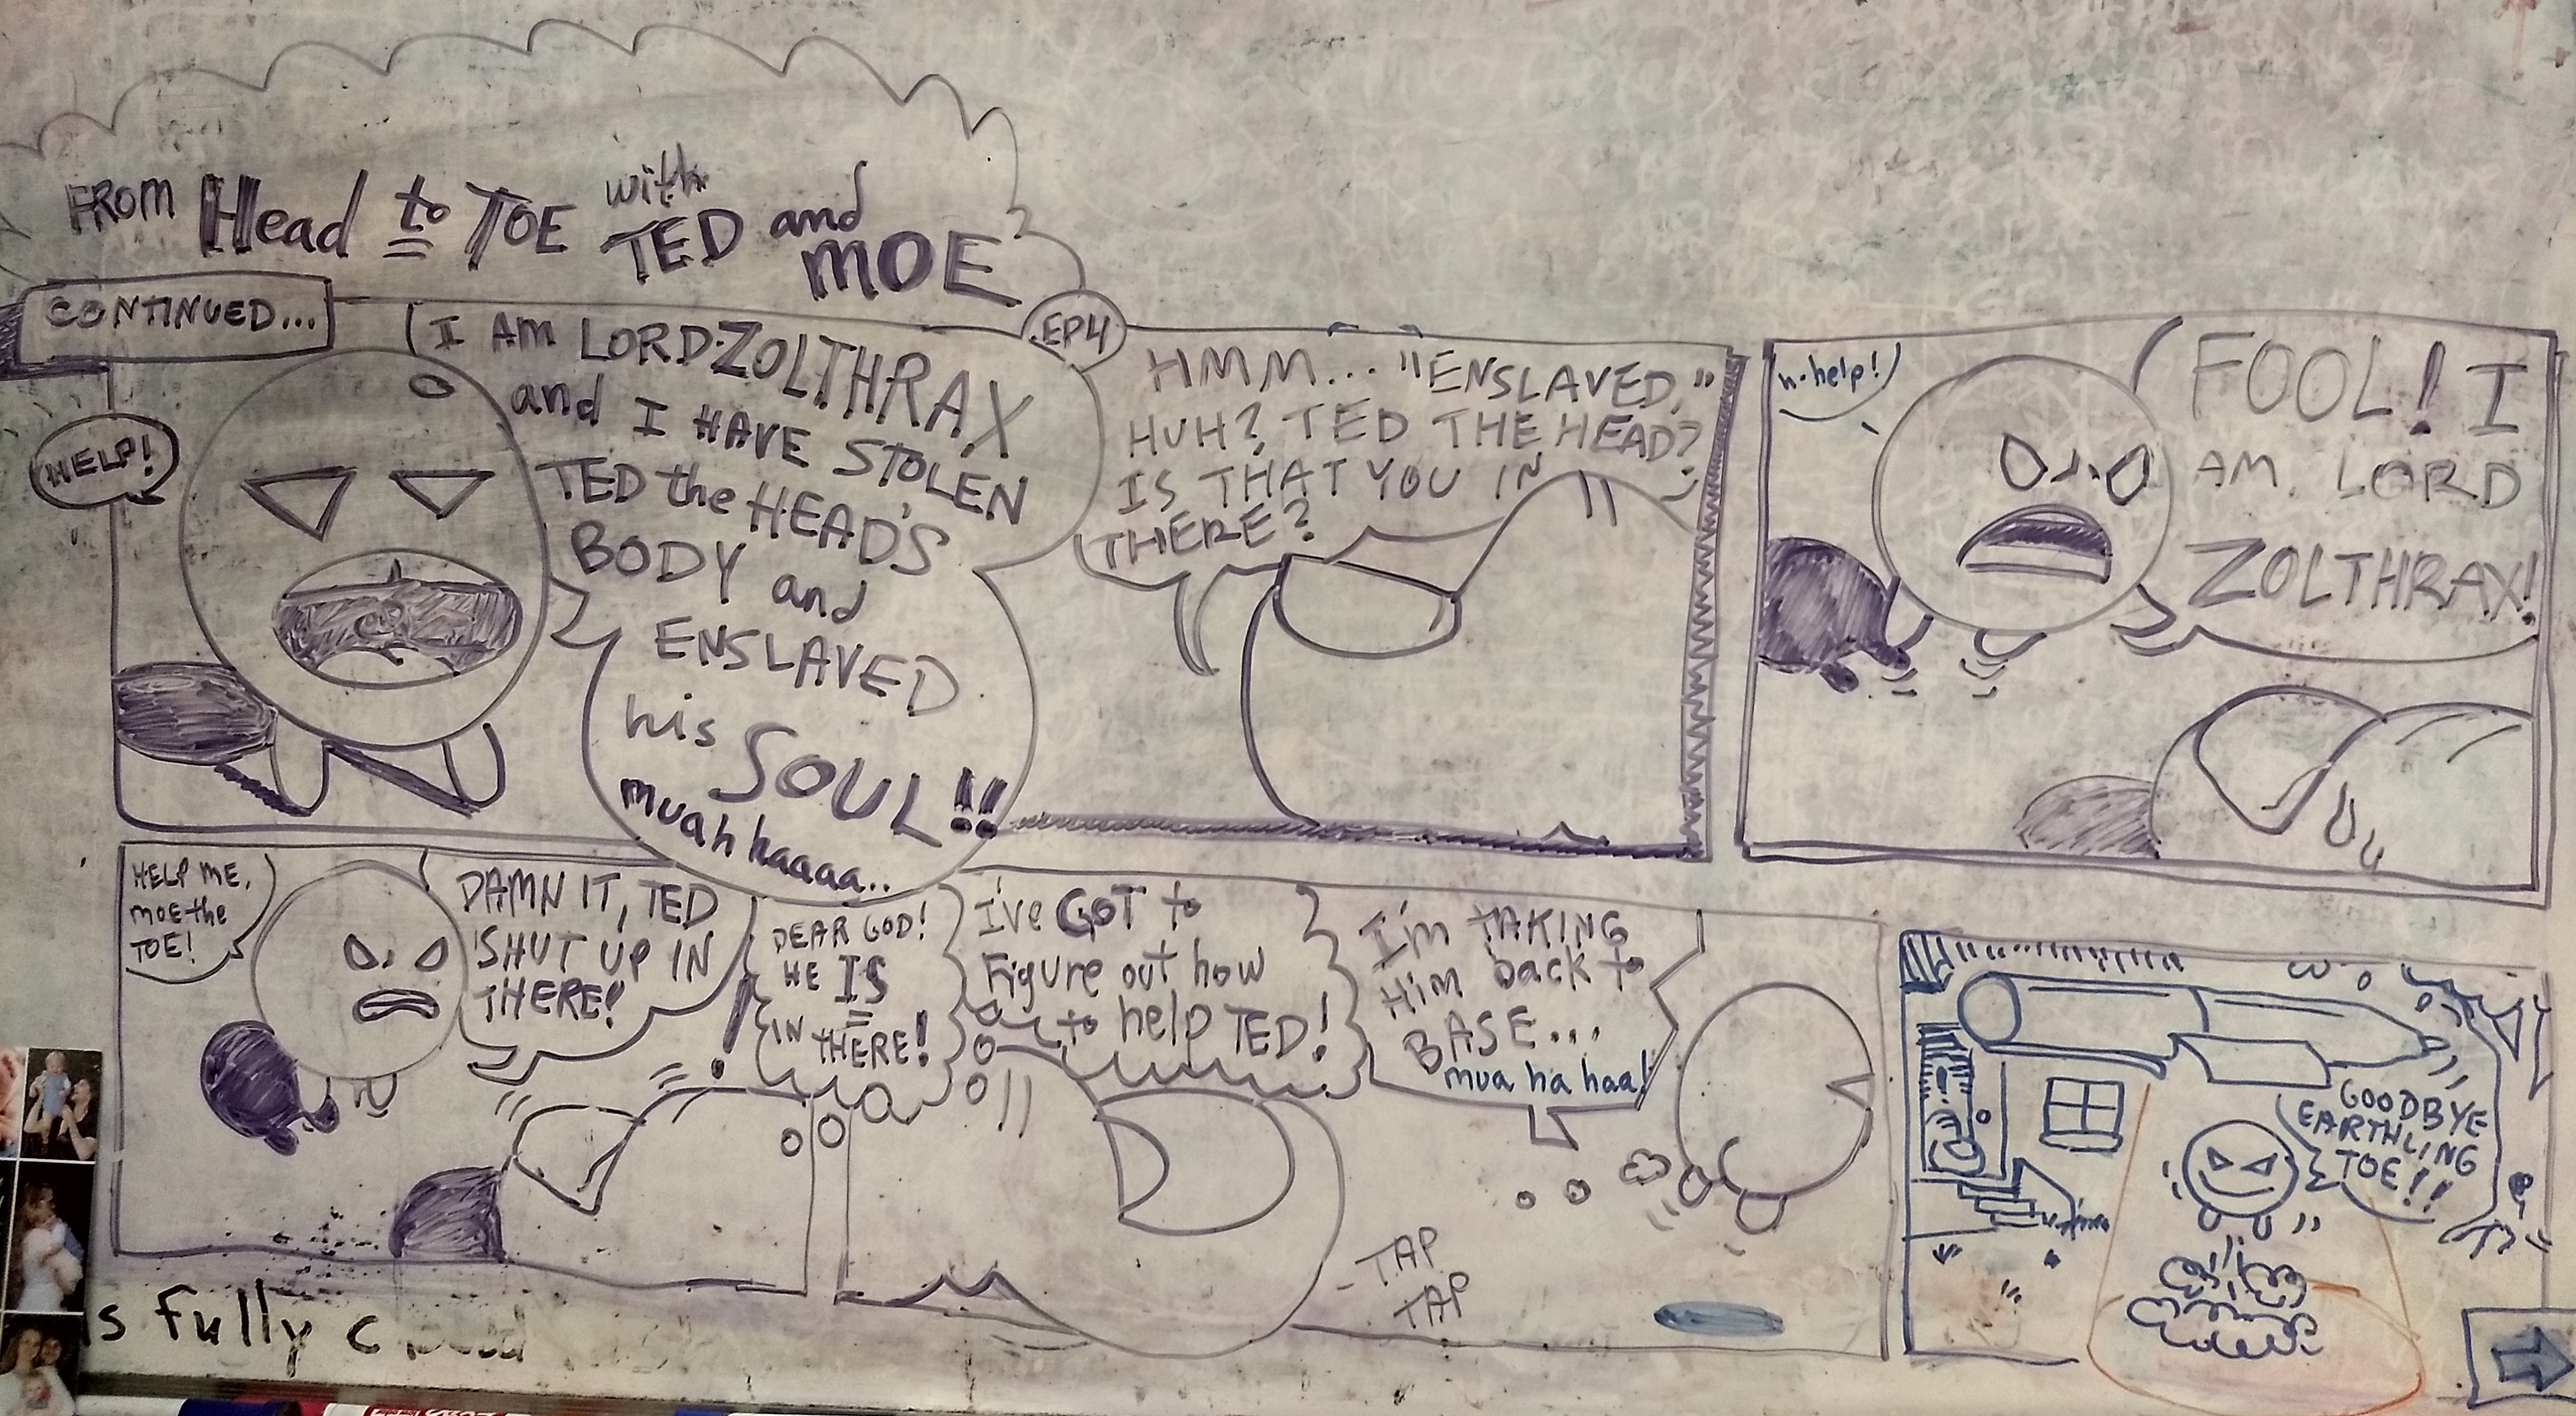 FROM Head to TOE with TED and MOE
CONTINUED...
EP4
HELP!
I AM LORD ZOLTHRAX
and I HAVE STOLEN
TED the HEAD'S
BODY and
ENSLAVED
his SOUL!!
muah haaaa..
HMM... "ENSLAVED,"
HUH? TED THE HEAD?
IS THAT YOU IN
THERE?
h-help!
FOOL! I
AM LORD
ZOLTHRAX!
HELP ME,
MOE the
TOE!
DAMN IT, TED
SHUT UP IN
THERE!
!
DEAR GOD!
HE IS
IN THERE!
I've GOT to
Figure out how
to help TED!
I'm TAKING
Him back to
BASE...
mua ha haa!
TAP
TAP
!
GOODBYE
EARTHLING
TOE!!
s fully c